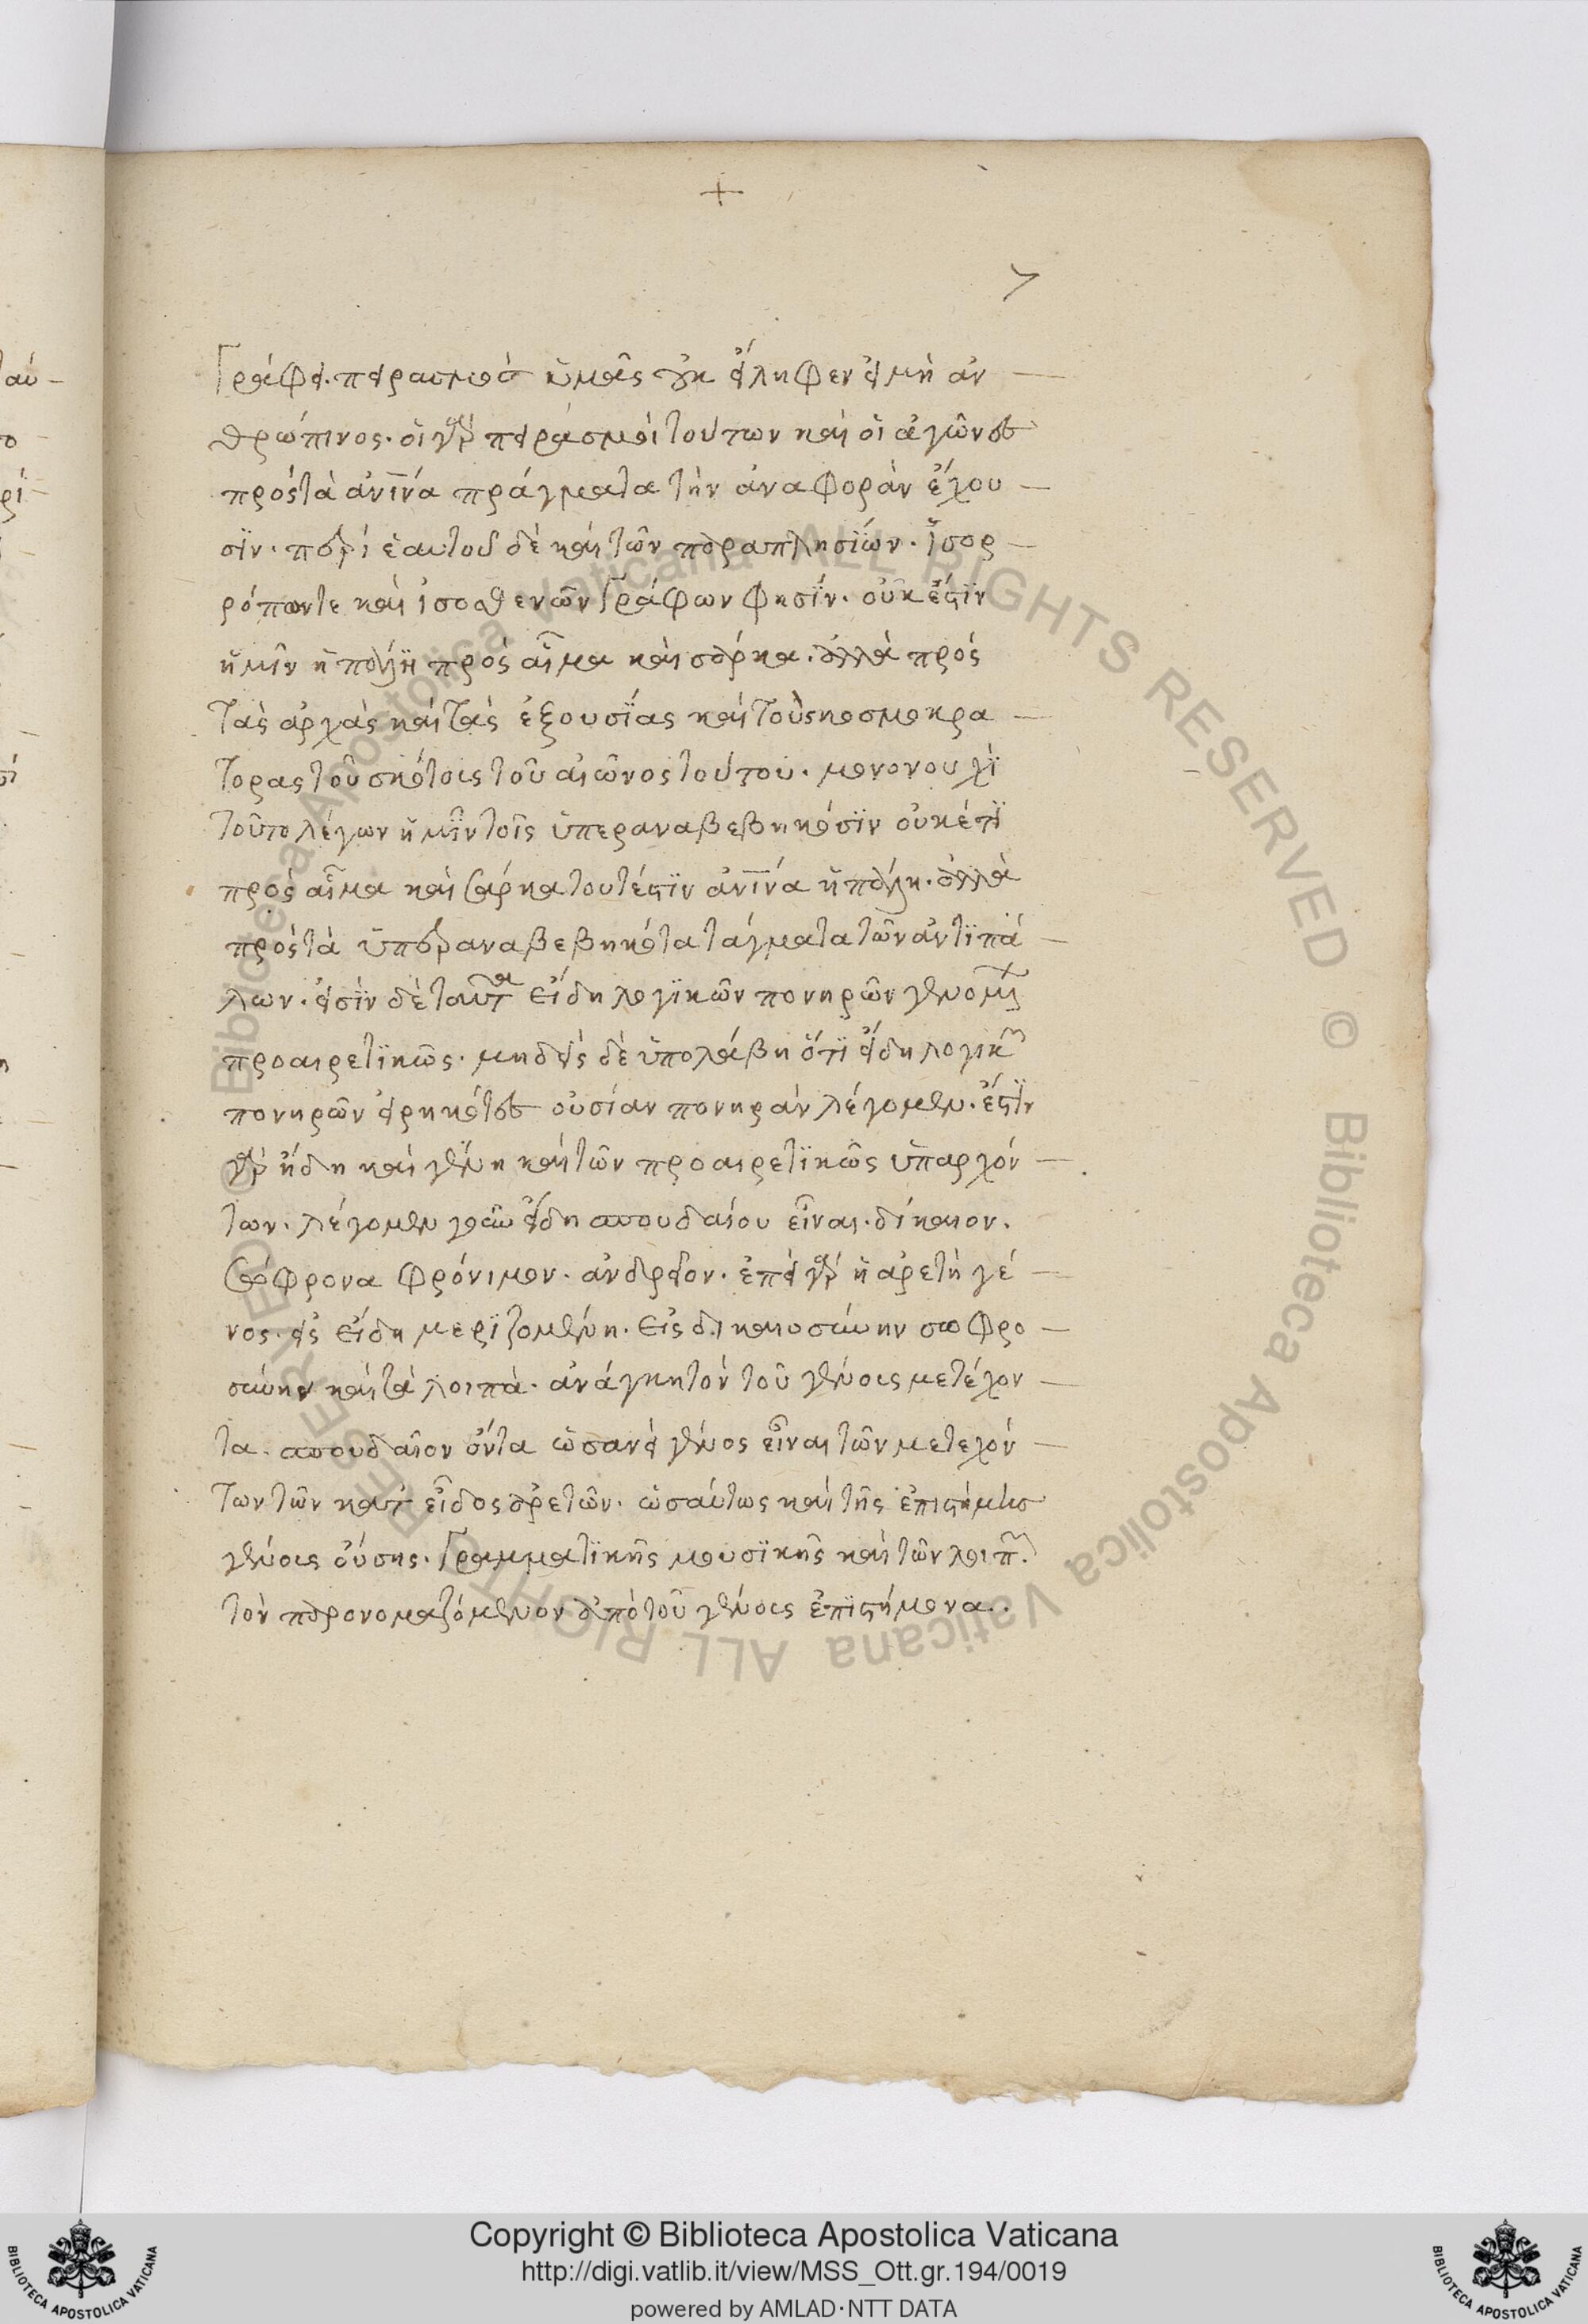 +
7
Γράφει. πειρασμὸς ὑμᾶς οὐκ εἴληφεν εἰ μὴ ἀν
θρώπινος. οἱ γὰρ πειρασμοὶ τούτων καὶ οἱ ἀγῶνες
πρὸς τὰ ἀνινά πράγματα τὴν ἀναφορὰν ἔχου
σϊν. περὶ ἑαυτοῦ δὲ καὶ τῶν παραπλησίων. ἰσορ
ρόπων τε καὶ ἰσοσθενῶν Γράφων φησίν. οὐκ ἔστϊν
ἡμῖν ἡ πάλη πρὸς αἷμα καὶ σάρκα. ἀλλὰ πρὸς
τὰς ἀρχὰς καὶ τὰς ἐξουσίας καὶ τοὺς κοσμοκρα
τορας τοῦ σκότους τοῦ αἰῶνος τούτου. μονονουχὶ
τοῦτο λέγων ἡμῖν τοῖς ὑπεραναβεβηκόσϊν οὐκέτϊ
πρὸς αἷμα καὶ σάρκα τουτέστϊν ἀνινά ἡ πάλη. ἀλλὰ
πρὸς τὰ ὑπεραναβεβηκότα τάγματα τῶν ἀντϊπά
λων. εἰσὶν δὲ ταῦτα εἴδη λογϊκῶν πονηρῶν γενομ
προαιρετϊκῶς. μηδεὶς δὲ ὑπολάβη ὅτϊ εἴδη λογικῶν
πονηρῶν εἰρηκότες οὐσίαν πονηρὰν λέγομεν. ἔστϊν
γὰρ ἤδη καὶ γένη καὶ τῶν προαιρετϊκῶς ὑπαρχόν
των. λέγομεν γοῦν εἴδη σπουδαίου εἶναι. δίκαιον.
σώφρονα φρόνιμον. ἀνδρεῖον. ἐπεὶ γὰρ ἡ ἀρετὴ γέ
νος. εἰς εἴδη μερϊζομένη. εἰς δικαιοσύνην σωφρο
σύνην καὶ τὰ λοιπὰ. ἀνάγκη τὸν τοῦ γένους μετέχον
τα. σπουδαῖον ὄντα ὡσανεὶ γένος εἶναι τῶν μετεχόν
των τῶν κατ' εἶδος ἀρετῶν. ὡσαύτως καὶ τῆς ἐπιστήμης
γένους οὔσης. Γραμματϊκῆς μουσϊκῆς καὶ τῶν λοιπῶν.
τὸν παρονομαζόμενον ἀπὸ τοῦ γένους ἐπϊστήμονα..
Copyright © Biblioteca Apostolica Vaticana
http://digi.vatlib.it/view/MSS_Ott.gr.194/0019
powered by AMLAD·NTT DATA